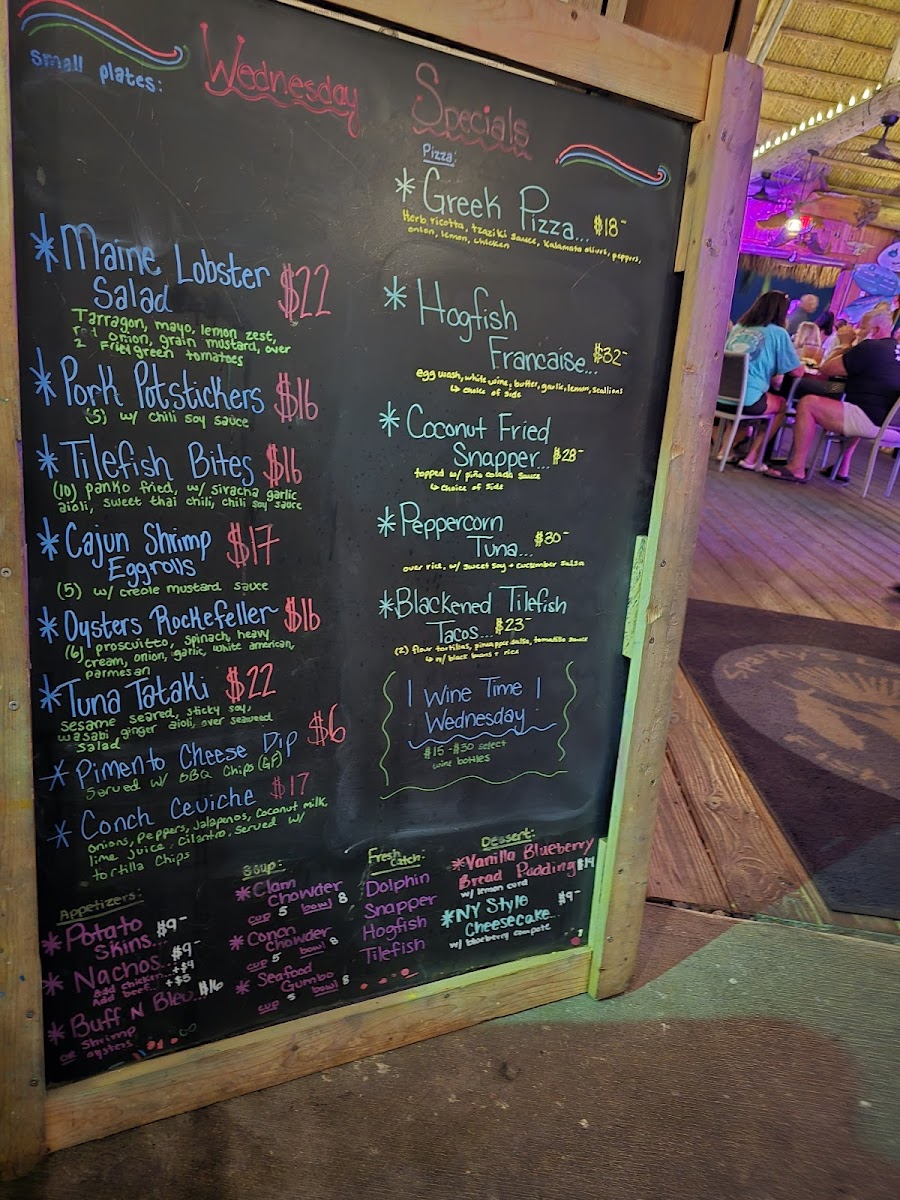 Wednesday Specials
small plates:
*Maine Lobster
Salad $22
Tarragon, mayo, lemon zest,
red onion, grain mustard, over
2 Fried green tomatoes
*Pork Potstickers $16
(5) w/ chili soy sauce
*Tilefish Bites $16
(10) panko fried, w/ siracha garlic
aioli, sweet thai chili, chili soy sauce
*Cajun Shrimp
Eggrolls $17
(5) w/ creole mustard sauce
*Oysters Rockefeller $16
(6) proscuitto, spinach, heavy
cream, onion, garlic, white american,
parmesan
*Tuna Tataki $22
sesame seared, sticky soy,
wasabi, ginger aioli, over seaweed
salad
*Pimento Cheese Dip $6
Served w/ BBQ Chips (GF)
*Conch Ceviche $17
onions, peppers, jalapenos, coconut milk,
lime juice, cilantro, served w/
tortilla chips
Pizza:
*Greek Pizza... $18-
Herb ricotta, tzaziki sauce, kalamata olives, peppers,
onion, lemon, chicken
*Hogfish
Francaise... $32-
egg wash, white wine, butter, garlic, lemon, scallions
↳ choice of side
*Coconut Fried
Snapper... $28-
topped w/ piña colada sauce
↳ choice of side
*Peppercorn
Tuna... $30-
over rice, w/ sweet soy + cucumber salsa
*Blackened Tilefish
Tacos... $23-
(2) flour tortillas, pineapple salsa, tomatillo sauce
↳ w/ black beans + rice
Wine Time
Wednesday
$15-$30 select
wine bottles
Appetizers:
*Potato
Skins... $9-
*Nachos... $9-
Add chicken.. +$4
Add beef.. +$5
*Buff N Bleu.. $16
Shrimp
or oysters
Soup:
*Clam
Chowder
cup 5 bowl 8
*Conch
Chowder
cup 5 bowl 8
*Seafood
Gumbo
cup 5 bowl 8
Fresh
Catch:
Dolphin
Snapper
Hogfish
Tilefish
Dessert:
*Vanilla Blueberry
Bread Pudding $14
w/ lemon curd
*NY Style $9-
Cheesecake...
w/ blueberry compote